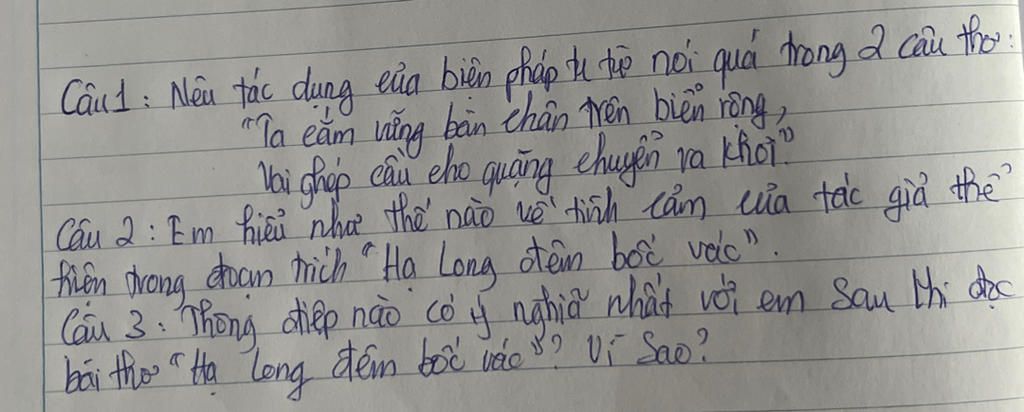 Câu 1: Nêu tác dụng của biện pháp tu từ nói quá trong 2 câu thơ:
"Ta cắm vững bàn chân trên biển rộng,
Vai ghép cầu cho quặng chuyển ra khơi"
Câu 2: Em hiểu như thế nào về tình cảm của tác giả thể
hiện trong đoạn trích "Hạ Long đêm bốc vác".
Câu 3: Thông điệp nào có ý nghĩa nhất với em sau khi đọc
bài thơ "Hạ Long đêm bốc vác"? Vì sao?